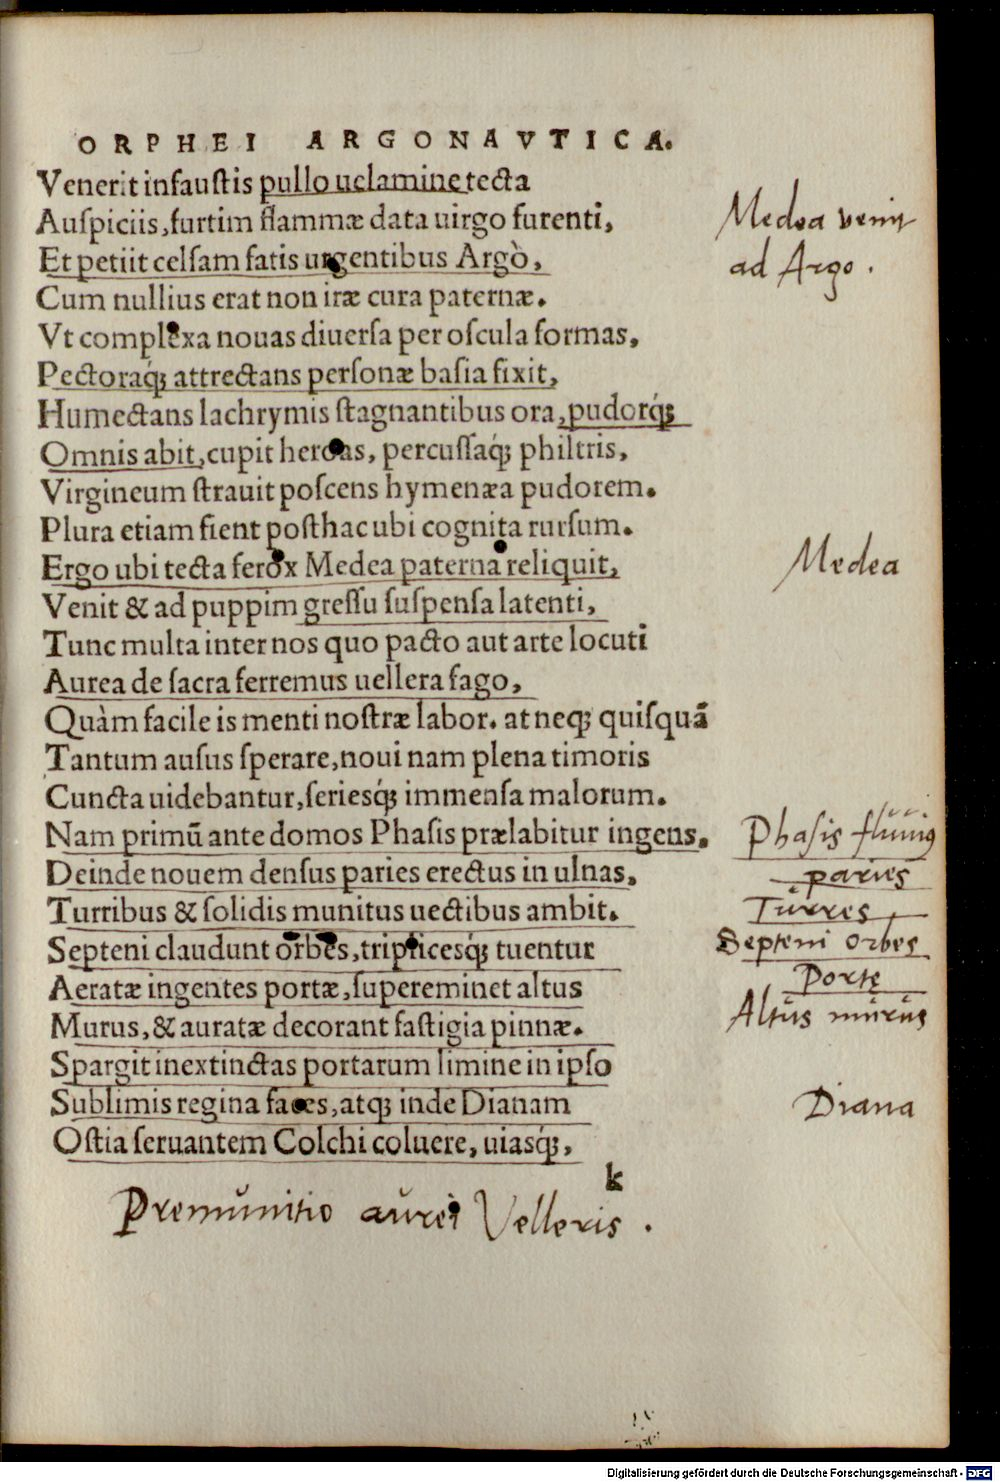 ORPHEI ARGONAVTICA.
Venerit infaustis pullo uelamine tecta
Auspiciis, furtim flammæ data uirgo furenti,
Medea venit
Et petiit celsam fatis urgentibus Argò,
ad Argo.
Cum nullius erat non iræ cura paternæ.
Vt complexa nouas diuersa per oscula formas,
Pectoraq́; attrectans personæ basia fixit,
Humectans lachrymis stagnantibus ora, pudorq́;
Omnis abit, cupit heroas, percussaq́; philtris,
Virgineum strauit poscens hymenæa pudorem.
Plura etiam fient posthac ubi cognita rursum.
Ergo ubi tecta ferox Medea paterna reliquit,
Medea
Venit & ad puppim gressu suspensa latenti,
Tunc multa inter nos quo pacto aut arte locuti
Aurea de sacra ferremus uellera fago,
Quàm facile is menti nostræ labor. at neq; quisquã
Tantum ausus sperare, noui nam plena timoris
Cuncta uidebantur, seriesq́; immensa malorum.
Nam primũ ante domos Phasis prælabitur ingens.
Phasis fluuius
Deinde nouem densus paries erectus in ulnas,
paries
Turribus & solidis munitus uectibus ambit.
Turres
Septeni claudunt orbes, triplicesq́; tuentur
Septeni orbes
Aeratæ ingentes portæ, supereminet altus
Portę
Murus, & auratæ decorant fastigia pinnæ.
Altus murus
Spargit inextinctas portarum limine in ipso
Sublimis regina faces, atq; inde Dianam
Diana
Ostia seruantem Colchi coluere, uiasq́;,
k
Premunitio aurei Velleris.
Digitalisierung gefördert durch die Deutsche Forschungsgemeinschaft - DFG